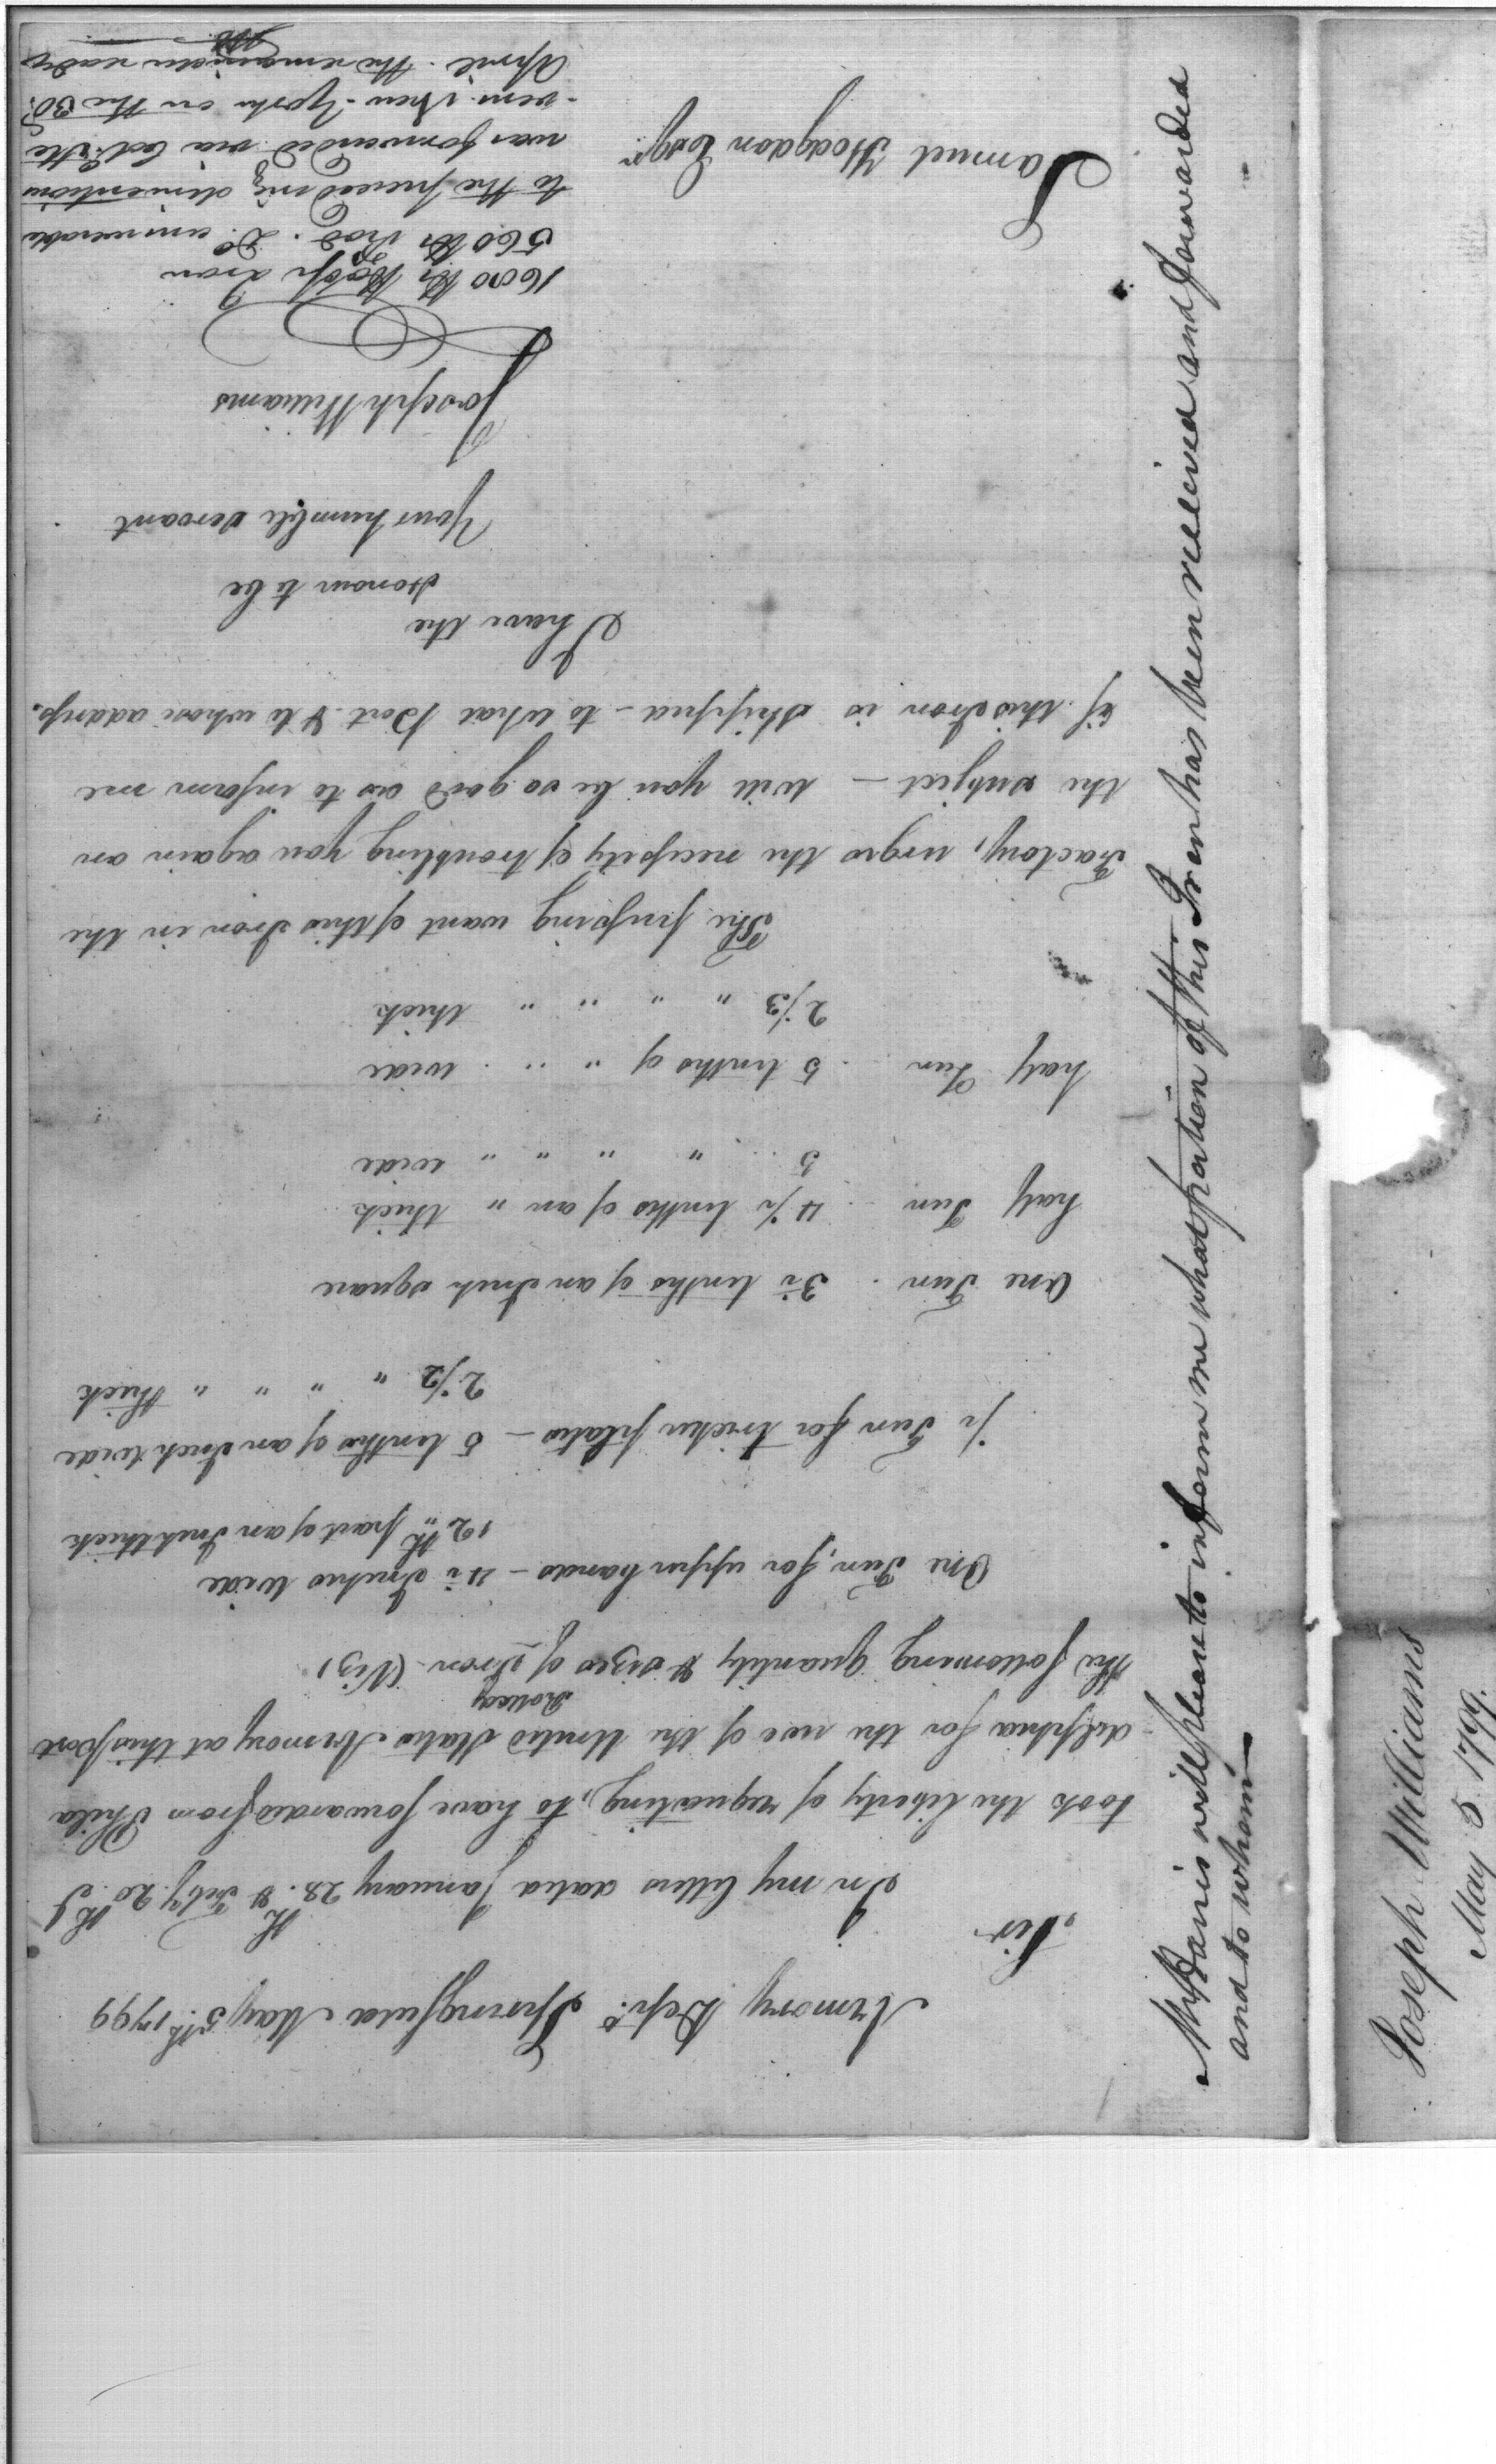 Armory Dept. Springfield May 5th. 1799
Sir
In my letters dated January 28th. & Feby. 20th I
took the liberty of requesting, to have forwarded from Phila
-delphia for the use of the United States Armory at this post
the following quantity & sizes of Rolled Iron (Viz)
One Tun, for upper bands - 4½ Inches wide
12th part of an Inch thick
½ Tun for tricker plates - 5 tenths of an Inch wide
2½ " " " " thick
One Tun . 3½ tenths of an Inch square
half Tun . 4½ tenths of an " thick
5 . " " " " wide
half Tun . 5 tenths of " " . wide
2⅓ " " " " thick
The pressing want of this Iron in the
Factory, urges the necessity of troubling you again on
the subject - will you be so good as to inform me
if this Iron is shipped - to what Port & to whose address.
I have the
Honour to be
Your humble servant
Joseph Williams
Samuel Hodgdon Esqr.
1600 lbs Hoop Iron
560 lbs Rod. Do. answerable
to the preceeding dimentions
was forwarded via
New-York on the 30th
April. the remainder ready
Mr Harris will please to inform me what portion of this Iron has been received and forwarded
and to whom
Joseph Williams
May 5 1799.